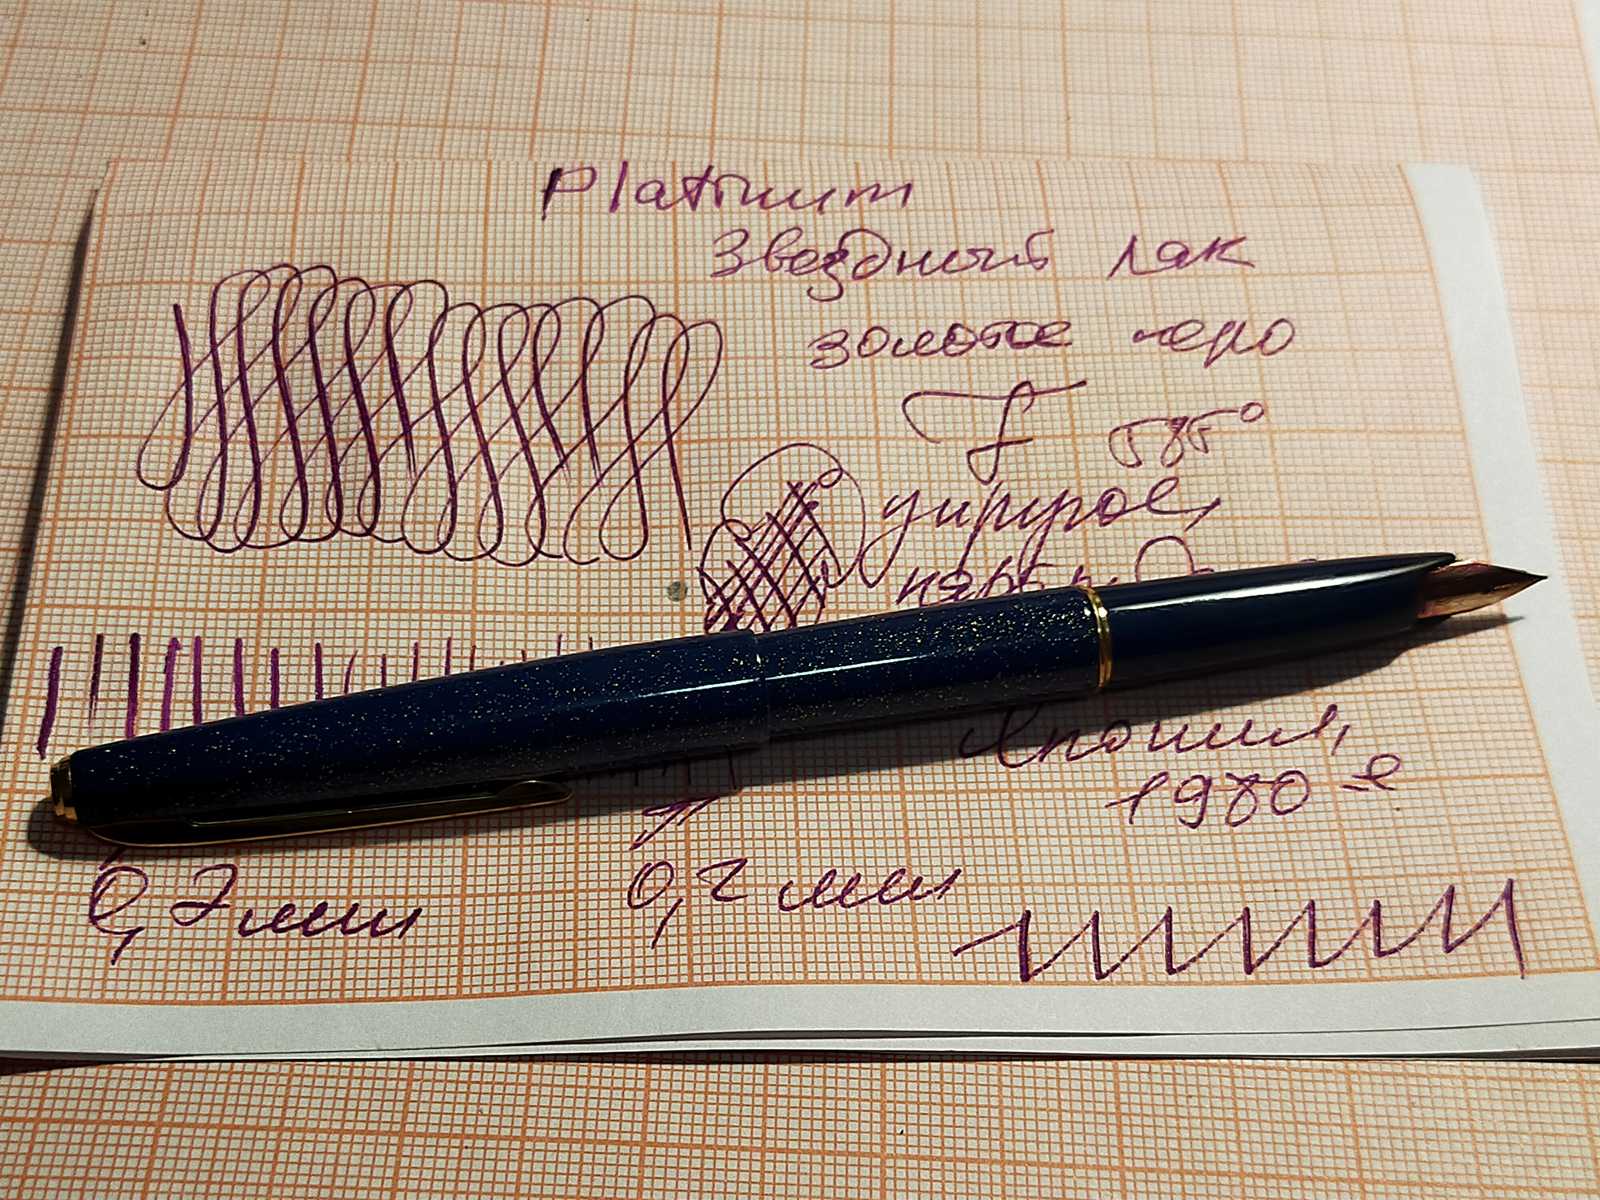 Platinum
Звездный лак
золотое перо
F 585°
упругое,
Япония,
1980-е
0,2 мм
0,2 мм